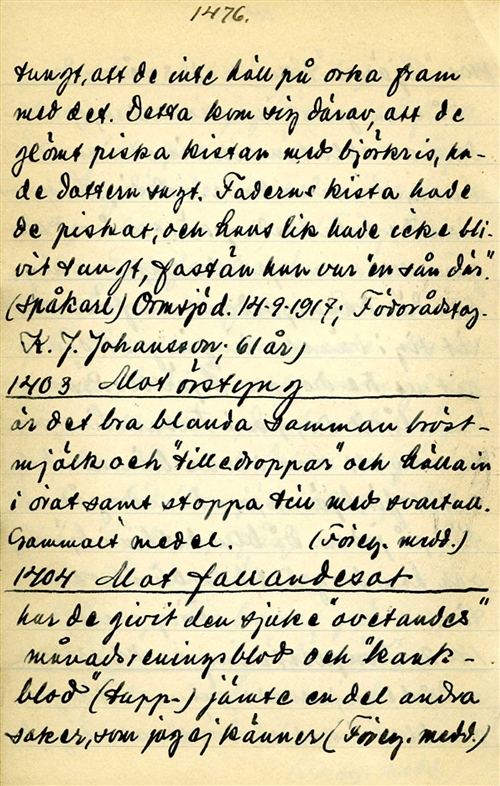 1476.
tungt, att de inte höll på orka fram
med det. Detta kom sig därav, att de
glömt piska kistan med björkris, ha-
de dottern sagt. Faderns kista hade
de piskat, och hans lik hade icke bli-
vit tungt, fastän han var "en sån där".
(Spåkarl) Ormsjö d. 14-9-1917; Födorådstag.
K. J. Johansson; 61 år)
1403 Mot örstyng
är det bra blanda samman bröst-
mjölk och "tilledroppar" och hälla in
i örat samt stoppa till med svartull.
Gammalt medel. (Föreg. medd.)
1404 Mot fallandesot
har de givit den sjuke "ovetandes"
månadsreningsblod och "kank-
blod" (tupp-) jämte en del andra
saker, som jag ej känner (Föreg. medd.)